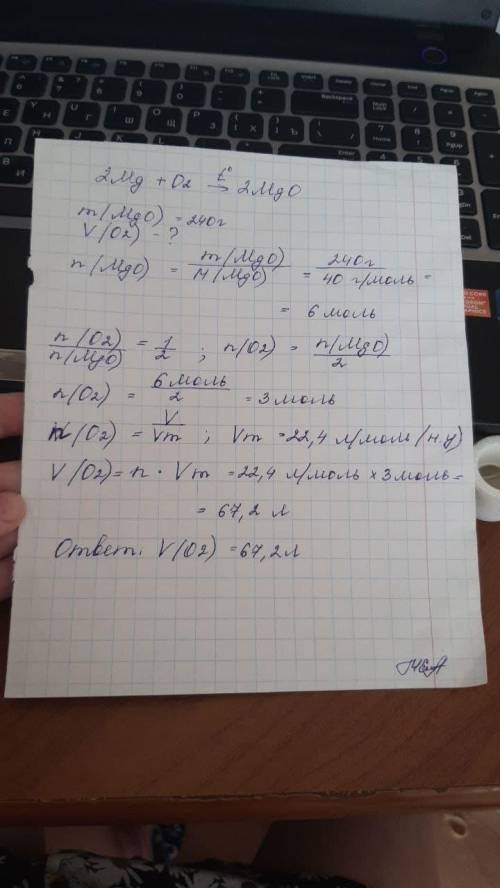 2Mg + O2 t°→ 2MgO
m(MgO) = 240г
V(O2) - ?
n(MgO) = m(MgO)/M(MgO) = 240г/40 г/моль =
= 6 моль
n(O2)/n(MgO) = 1/2 ; n(O2) = n(MgO)/2
n(O2) = 6 моль/2 = 3 моль
n(O2) = V/Vm ; Vm = 22,4 л/моль (н.у)
V(O2) = n · Vm = 22,4 л/моль × 3 моль =
= 67,2 л
Ответ: V(O2) = 67,2 л